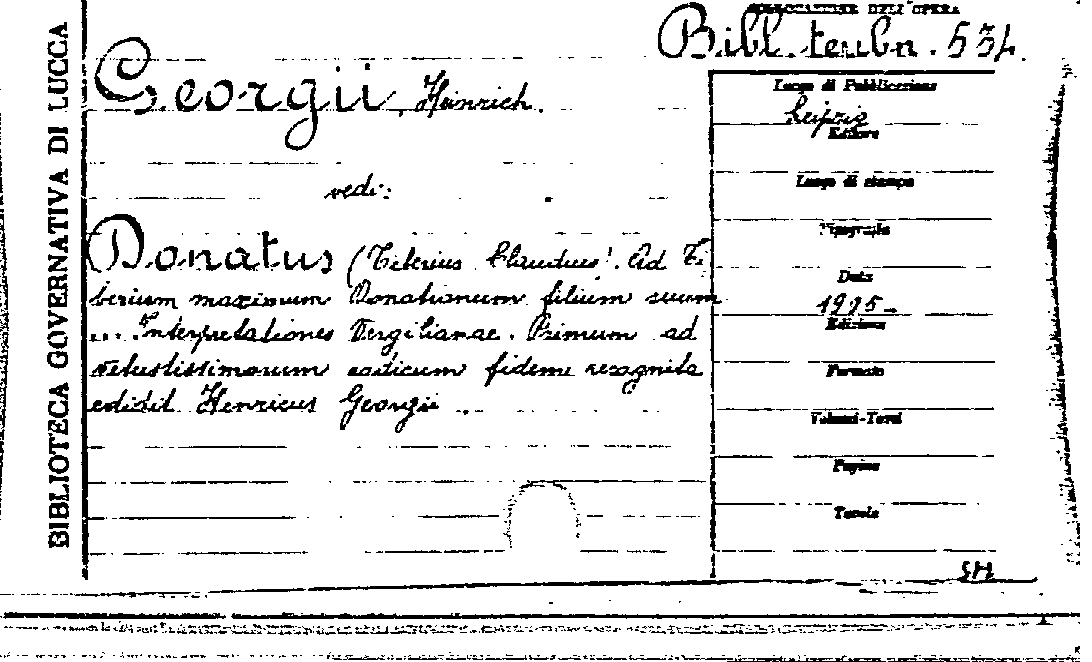 COLLOCAZIONE DELL'OPERA
Bibl. teubn. 534.
BIBLIOTECA GOVERNATIVA DI LUCCA
Georgii, Heinrich.
vedi:
Donatus (Tiberius Claudius). Ad Ti
berium maximum Donatianum filium suum
... Interpretationes Vergilianae. Primum ad
vetustissimorum codicum fidem recognita
edidit Henricus Georgii.
Luogo di Pubblicazione
Leipzig
Editore
Luogo di stampa
Tipografia
Data
Edizione
Formato
Volumi-Tomi
Pagine
Tavole